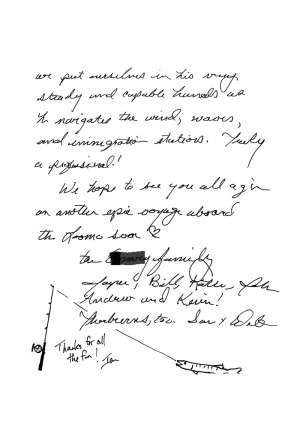 we put ourselves in his very
steady and capable hands as
he navigates the wind, waves,
and immigration stations. Truly
a professional!
We hope to see you all again
on another epic voyage aboard
the soon
the family
Bill,
Andrew and Kevin!
too.
Thanks for all
the fun!